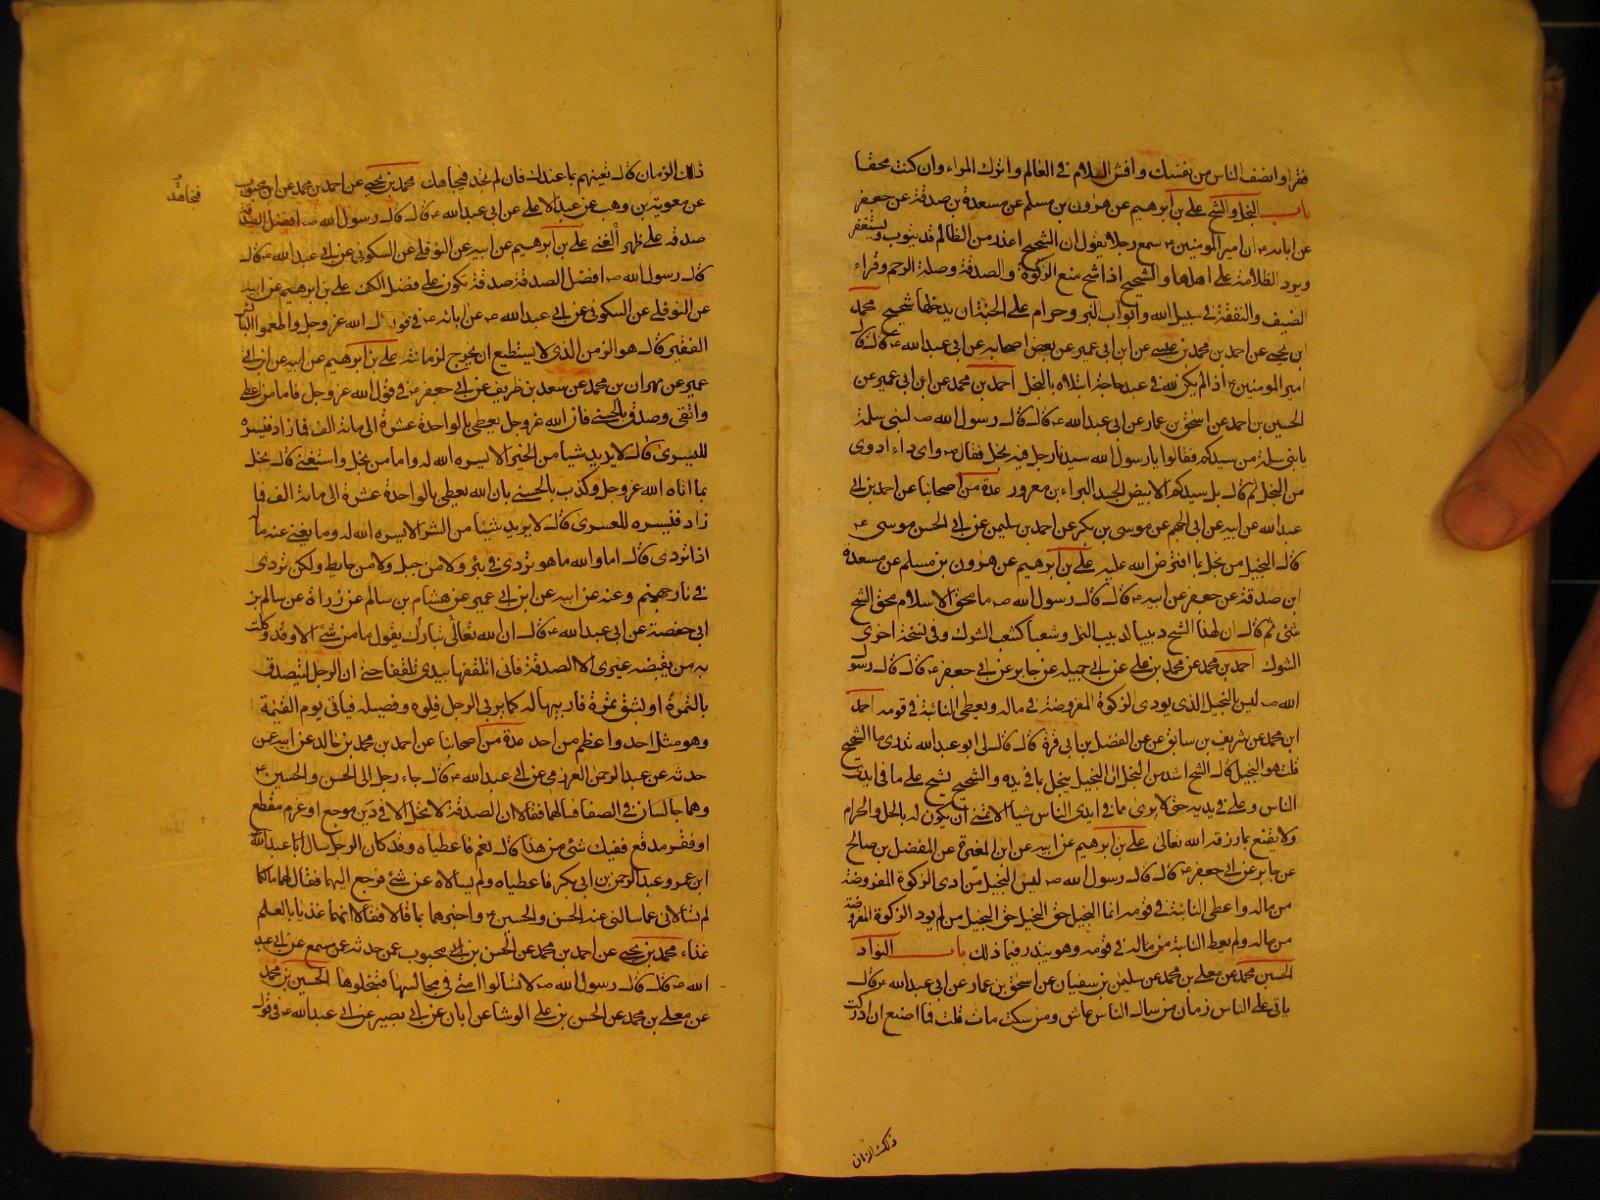 فقرا وانصف الناس من نفسك وافش السلام في العالم واترك المراء وان كنت محقا
باب البخل والشح علي بن ابرهيم عن هرون بن مسلم عن مسعدة بن صدقة عن جعفر
عن ابائه ان امير المومنين ع سمع رجلا يقول ان الشحيح اعذر من الظالم قد يتوب ويستغفر
ويرد الظلامة على اهلها والشحيح اذا شح منع الزكوة والصدقة وصلة الرحم وقراء
الضيف والنفقة في سبيل الله وابواب البر وحرام على الجنة ان يدخلها شحيح محمد
ابن يحيى عن احمد بن محمد بن عيسى عن ابن ابي عمير عن بعض اصحابه عن ابي عبدالله ع قال قال
امير المومنين ع اذا لم يكن لله في عبد حاجة ابتلاه بالبخل احمد بن محمد عن ابن ابي عمير عن
الحسين بن احمد عن اسحق بن عمار عن ابي عبدالله ع قال قال رسول الله ص لبني سلمة
يابني سلمة من سيدكم فقالوا يا رسول الله سيدنا رجل فيه بخل فقال ص واي داء ادوى
من البخل ثم قال بل سيدكم الابيض الجسد البراء بن معرور عدة من اصحابنا عن احمد بن ابي
عبدالله عن ابيه عن ابي الجهم عن موسى بن بكر عن احمد بن سليمن عن ابي الحسن موسى ع
قال البخيل من بخل بما افترض الله عليه علي بن ابرهيم عن هرون بن مسلم عن مسعدة
ابن صدقة عن جعفر عن ابيه ع قال قال رسول الله ص ما محق الاسلام محق الشح
شئ ثم قال ان لهذا الشح دبيبا كدبيب النمل وشعبا كشعب الشرك وفي نسخة اخرى
الشوك احمد بن محمد عن محمد بن علي عن ابي جميله عن جابر عن ابي جعفر ع قال قال رسو
الله ص ليس بالبخيل الذي يودى الزكوة المفروضة في ماله ويعطي النائبة في قومه احمد
ابن محمد عن شريف بن سابق عن الفضل بن ابي قرة قال قال لي ابو عبدالله تدرى ما الشحيح
قلت هو البخيل قال الشح اشد من البخل ان البخيل يبخل بما في يده والشحيح يشح على ما في ايدى
الناس وعلى في يديه حتى لا يرى مما في ايدى الناس شيأ الا تمنى ان يكون له بالحل والحرام
ولا يقنع بما رزقه الله تعالى علي بن ابرهيم عن ابيه عن ابن المغيرة عن المفضل بن صالح
عن جابر عن ابي جعفر ع قال قال رسول الله ص ليس البخيل من ادى الزكوة المفروضة
من ماله واعطى النائبة في قومه انما البخيل حق البخيل حق البخيل من لم يود الزكوة المفروضة
من ماله ولم يعط النابة من ماله في قومه وهو يبذر فيما ذلك باب النواد
الحسين محمد عن معلى بن محمد عن سليمن بن سفيان عن اسحق بن عمار عن ابي عبدالله ع قال
ياتي على الناس زمان من سال الناس عاش ومن سكت مات قلت فما اصنع ان ادركت
ذلك الزمان
ذلك الزمان قال تعينهم بما عندك فان لم تجد فبجاهك محمد بن يحيى عن احمد بن محمد عن ابن محبوب
فتجاهد
عن معوية بن وهب عن عبدالاعلى عن ابي عبدالله ع قال قال رسول الله ص افضل الصدقة
صدقة على ظهر الغنى علي بن ابرهيم عن ابيه عن النوفلي عن السكوني عن ابي عبدالله ع قال
قال رسول الله ص افضل الصدقة صدقة تكون على فضل الكف علي بن ابرهيم عن ابيه
عن النوفلي عن السكوني عن ابي عبدالله ع عن ابائه ع في قول الله عز وجل واطعموا البائس
الفقير قال هو الزمن الذي لا يستطيع ان يخرج لزمانته علي بن ابرهيم عن ابيه عن ابن ابي
عمير عن مهران بن محمد عن سعد بن طريف عن ابي جعفر ع في قول الله عز وجل فاما من اعطى
واتقى وصدق بالحسنى فان الله عز وجل يعطي بالواحدة عشرة الى مائة الف فما زاد فسنيسره
لليسرى قال لا يريد شيأ من الخير الا يسره الله له واما من بخل واستغنى قال بخل
بما اتاه الله عز وجل وكذب بالحسنى بان الله يعطي بالواحدة عشرة الى مائة الف فما
زاد فسنيسره للعسرى قال لا يريد شيئا من الشر الا يسره الله له وما يغني عنه ما
اذا تردى قال اما والله ما هو تردى في بئر ولا من جبل ولا من حايط ولكن تردى
في نار جهنم وعنه عن ابيه عن ابن ابي عمير عن هشام بن سالم عن زرارة عن سالم بن
ابي حفصة عن ابي عبدالله ع قال ان الله تعالى تبارك يقول ما من شئ الا وقد وكلت
به من يقبضه غيري الا الصدقة فاني اتلقفها بيدي تلقفا حتى ان الرجل ليتصدق
بالتمرة او بشق تمرة فاربيها له كما يربي الرجل فلوه وفصيله فياتي يوم القيمة
وهو مثل احد واعظم من احد عدة من اصحابنا عن احمد بن محمد بن خالد عن ابيه عن
حدثه عن عبدالرحمن العرزمي عن ابي عبدالله ع قال جاء رجل الى الحسن والحسين ع
وهما جالسان في الصفا فسالهما فقالا ان الصدقة لا تحل الا في دين موجع او غرم مفظع
او فقر مدقع ففيك شئ من هذا قال نعم فاعطياه وقد كان الرجل سال ابا عبدالله
ابن عمر وعبدالرحمن بن ابي بكر فاعطياه ولم يسألاه عن شئ فرجع اليهما فقال لهما ما لكما
لم تسألاني عما سالني عنه الحسن والحسين ع واخبرهما بما قالا فقالا انهما غذيا بالعلم
غذاء محمد بن يحيى عن احمد بن محمد عن الحسن بن ابي محبوب عمن حدثه عن مسمع عن ابي عبد
الله ع قال قال رسول الله ص لا تسالوا امتي في مجالسها فتبخلوها الحسين بن محمد
عن معلى بن محمد عن الحسن بن علي الوشا عن ابان عن ابي بصير عن ابي عبدالله ع في قول